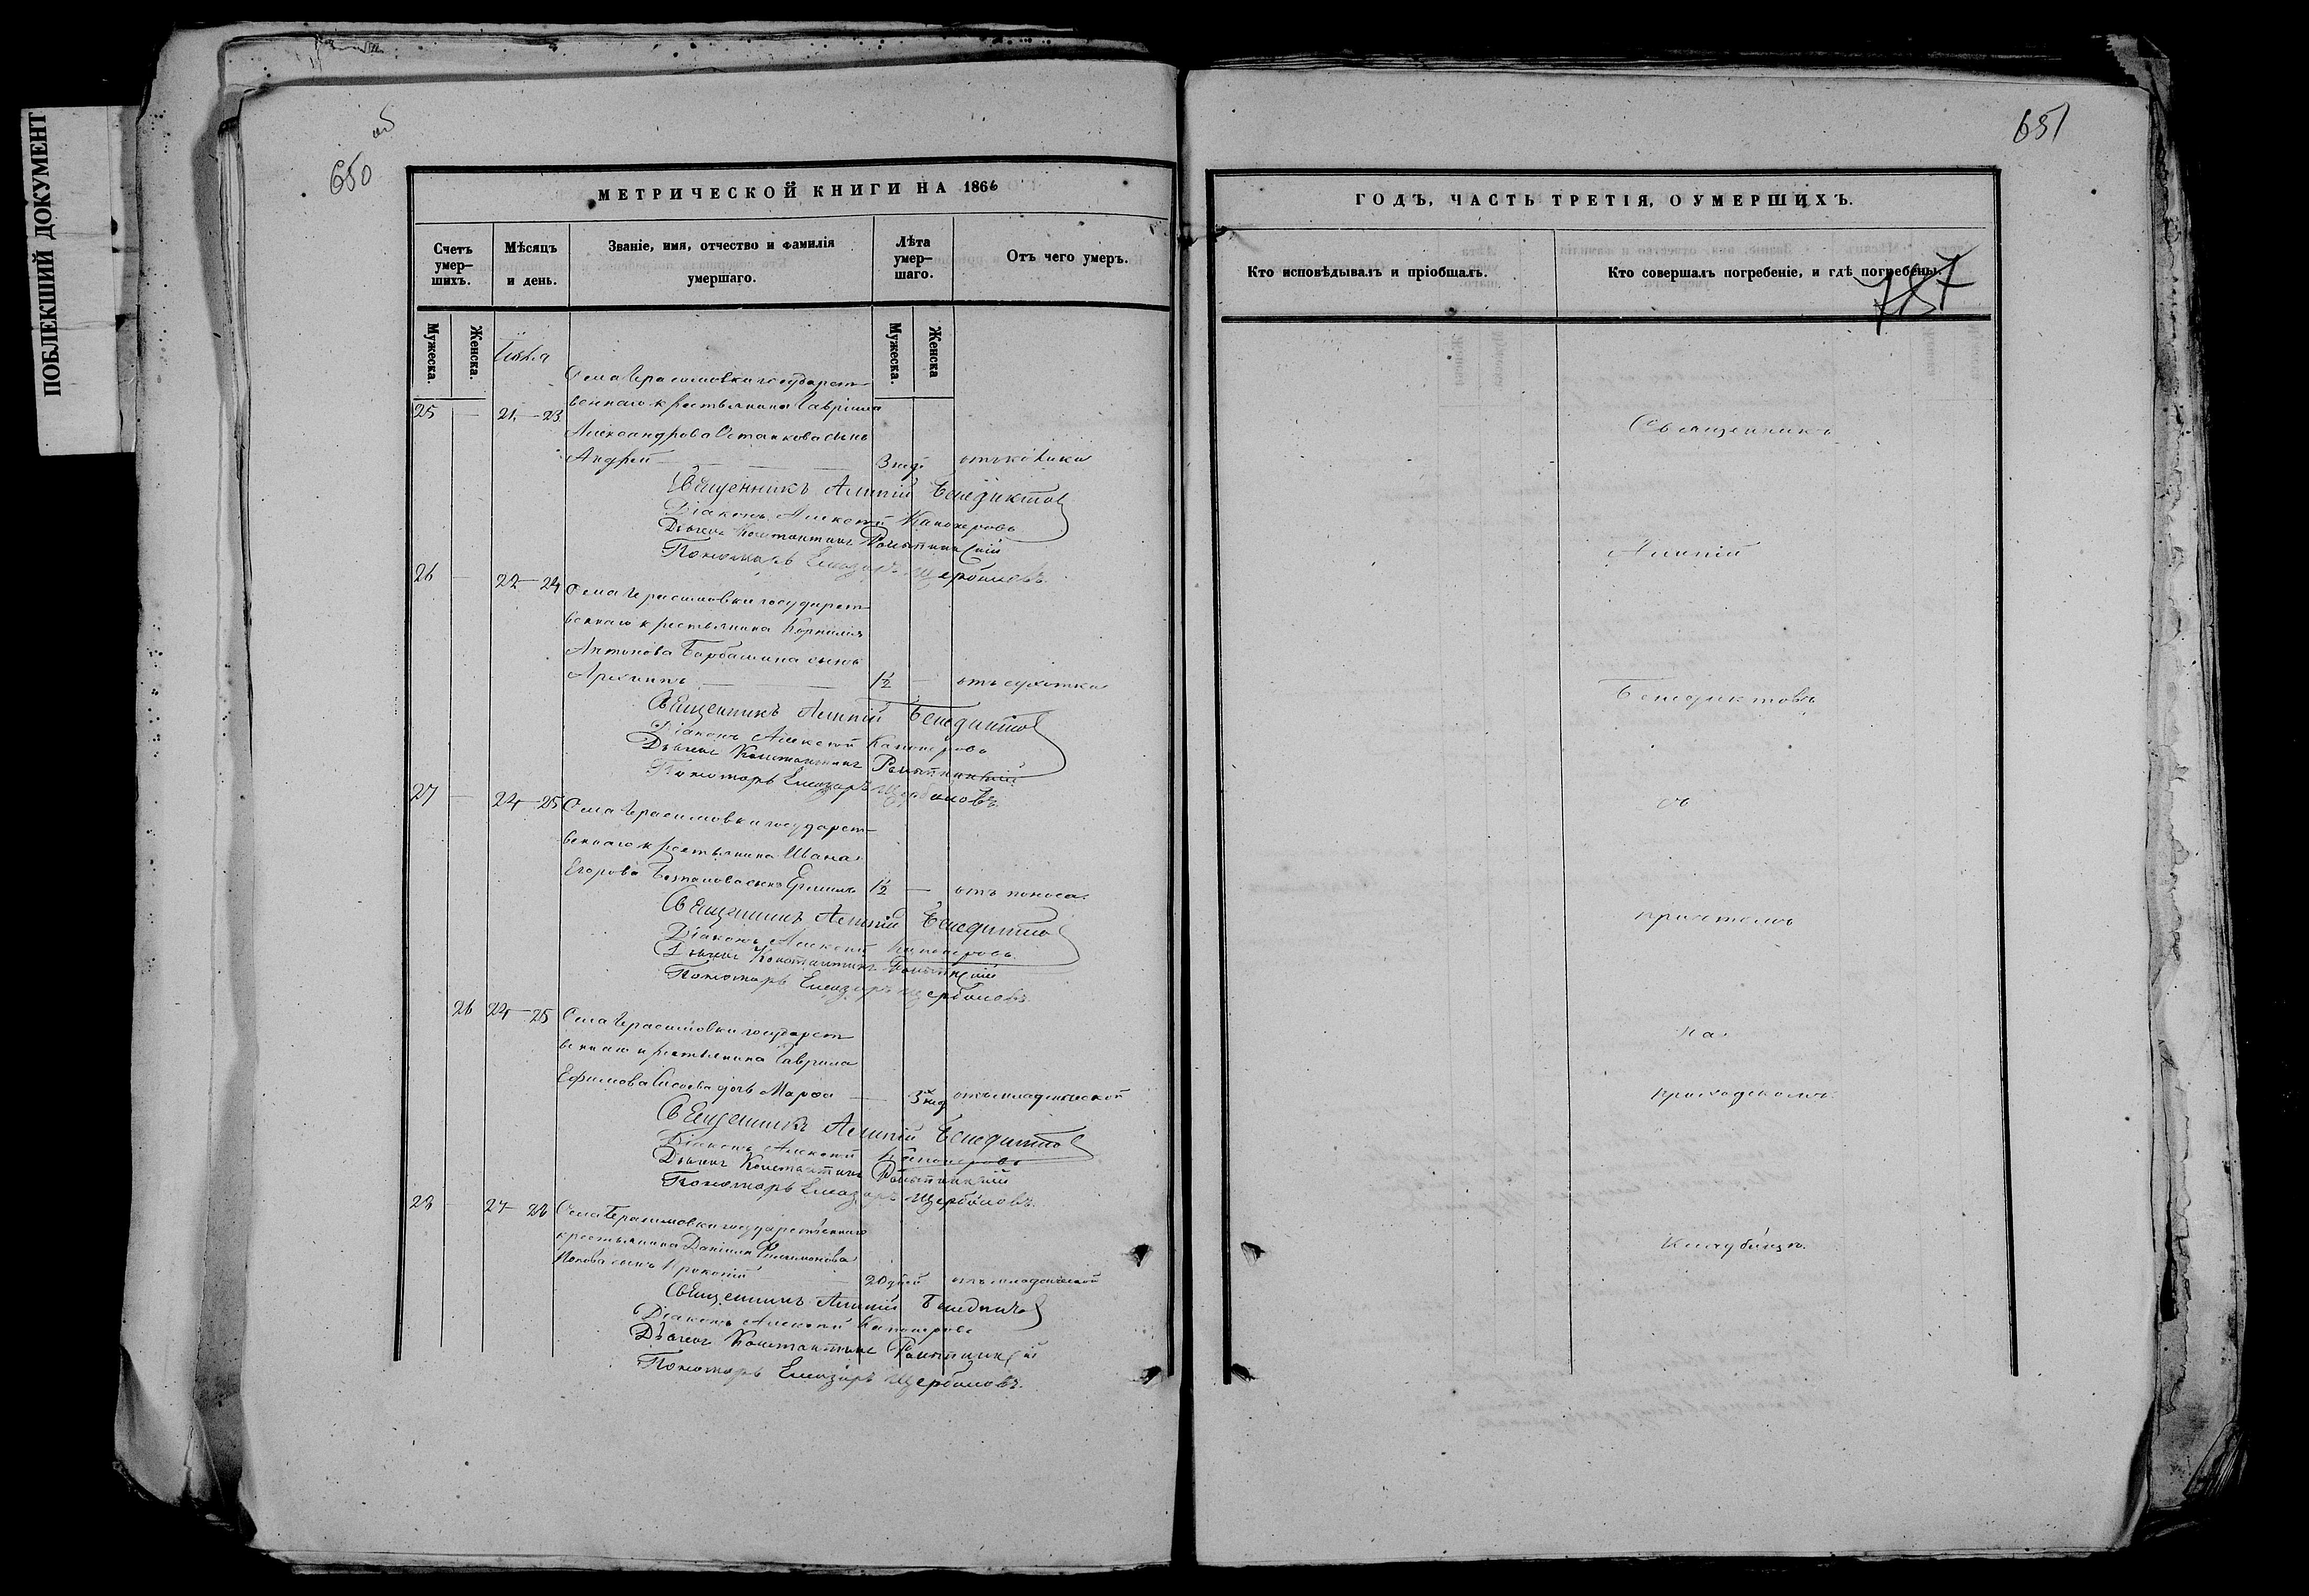 ПОБЛЕКШИЙ ДОКУМЕНТ
650
об
МЕТРИЧЕСКОЙ КНИГИ НА 1866
Счетъ умер- шихъ.
Мѣсяцъ и день.
Званіе, имя, отчество и фамилія умершаго.
Лѣта умер- шаго.
Отъ чего умеръ.
Мужеска.
Женска.
Мужеска.
Женска
Села Герасимовки государст-
25 — 21 — 23 веннаго крестьянина Гавріила
Александрова Останкова сынъ
Андрей — 3 нед отъ коклюша
Священникъ Алипій Бенедиктов
Діаконъ Алексей Канонеровъ
Дьячок Константинъ
Пономарь Елиазаръ Щербаковъ.
26 — 22 — 24 Села Герасимовки государст-
веннаго крестьянина Корнилія
Антонова Барбашина сынъ
Архипъ — 1½ — отъ сухотки
Священникъ Алипій Бенедиктов
Діаконъ Алексей Канонеровъ
Дьячок Константинъ
Пономарь Елиазаръ Щербаковъ.
27 — 24 — 25 Села Герасимовки государст-
веннаго крестьянина Ивана
Егорова сынъ 1½ — отъ поноса.
Священникъ Алипій Бенедиктов
Діаконъ Алексей Канонеровъ
Дьячок Константинъ
Пономарь Елиазаръ Щербаковъ.
26 24 — 25 Села Герасимовки государст
веннаго крестьянина Гаврила
Ефимова Сысоева дочь Марѳа — 3 нед отъ младенческой
Священникъ Алипій Бенедиктов
Діаконъ Алексей Канонеровъ
Дьячок Константинъ
Пономарь Елиазаръ Щербаковъ.
28 — 27 — 28 Села Герасимовки государственнаго
крестьянина Даніила Филимонова
Попова сынъ Прокопій — 20 дней отъ младенческой
Священникъ Алипій Бенедиктов
Діаконъ Алексей Канонеровъ
Дьячок Константинъ
Пономарь Елиазаръ Щербаковъ.
651
ГОДЪ, ЧАСТЬ ТРЕТІЯ, О УМЕРШИХЪ.
Кто исповѣдывалъ и пріобщалъ.
Кто совершалъ погребеніе, и гдѣ погребены.
Священникъ
Алипій
Бенедиктовъ
съ
причтомъ
на
приходскомъ
кладбищѣ.